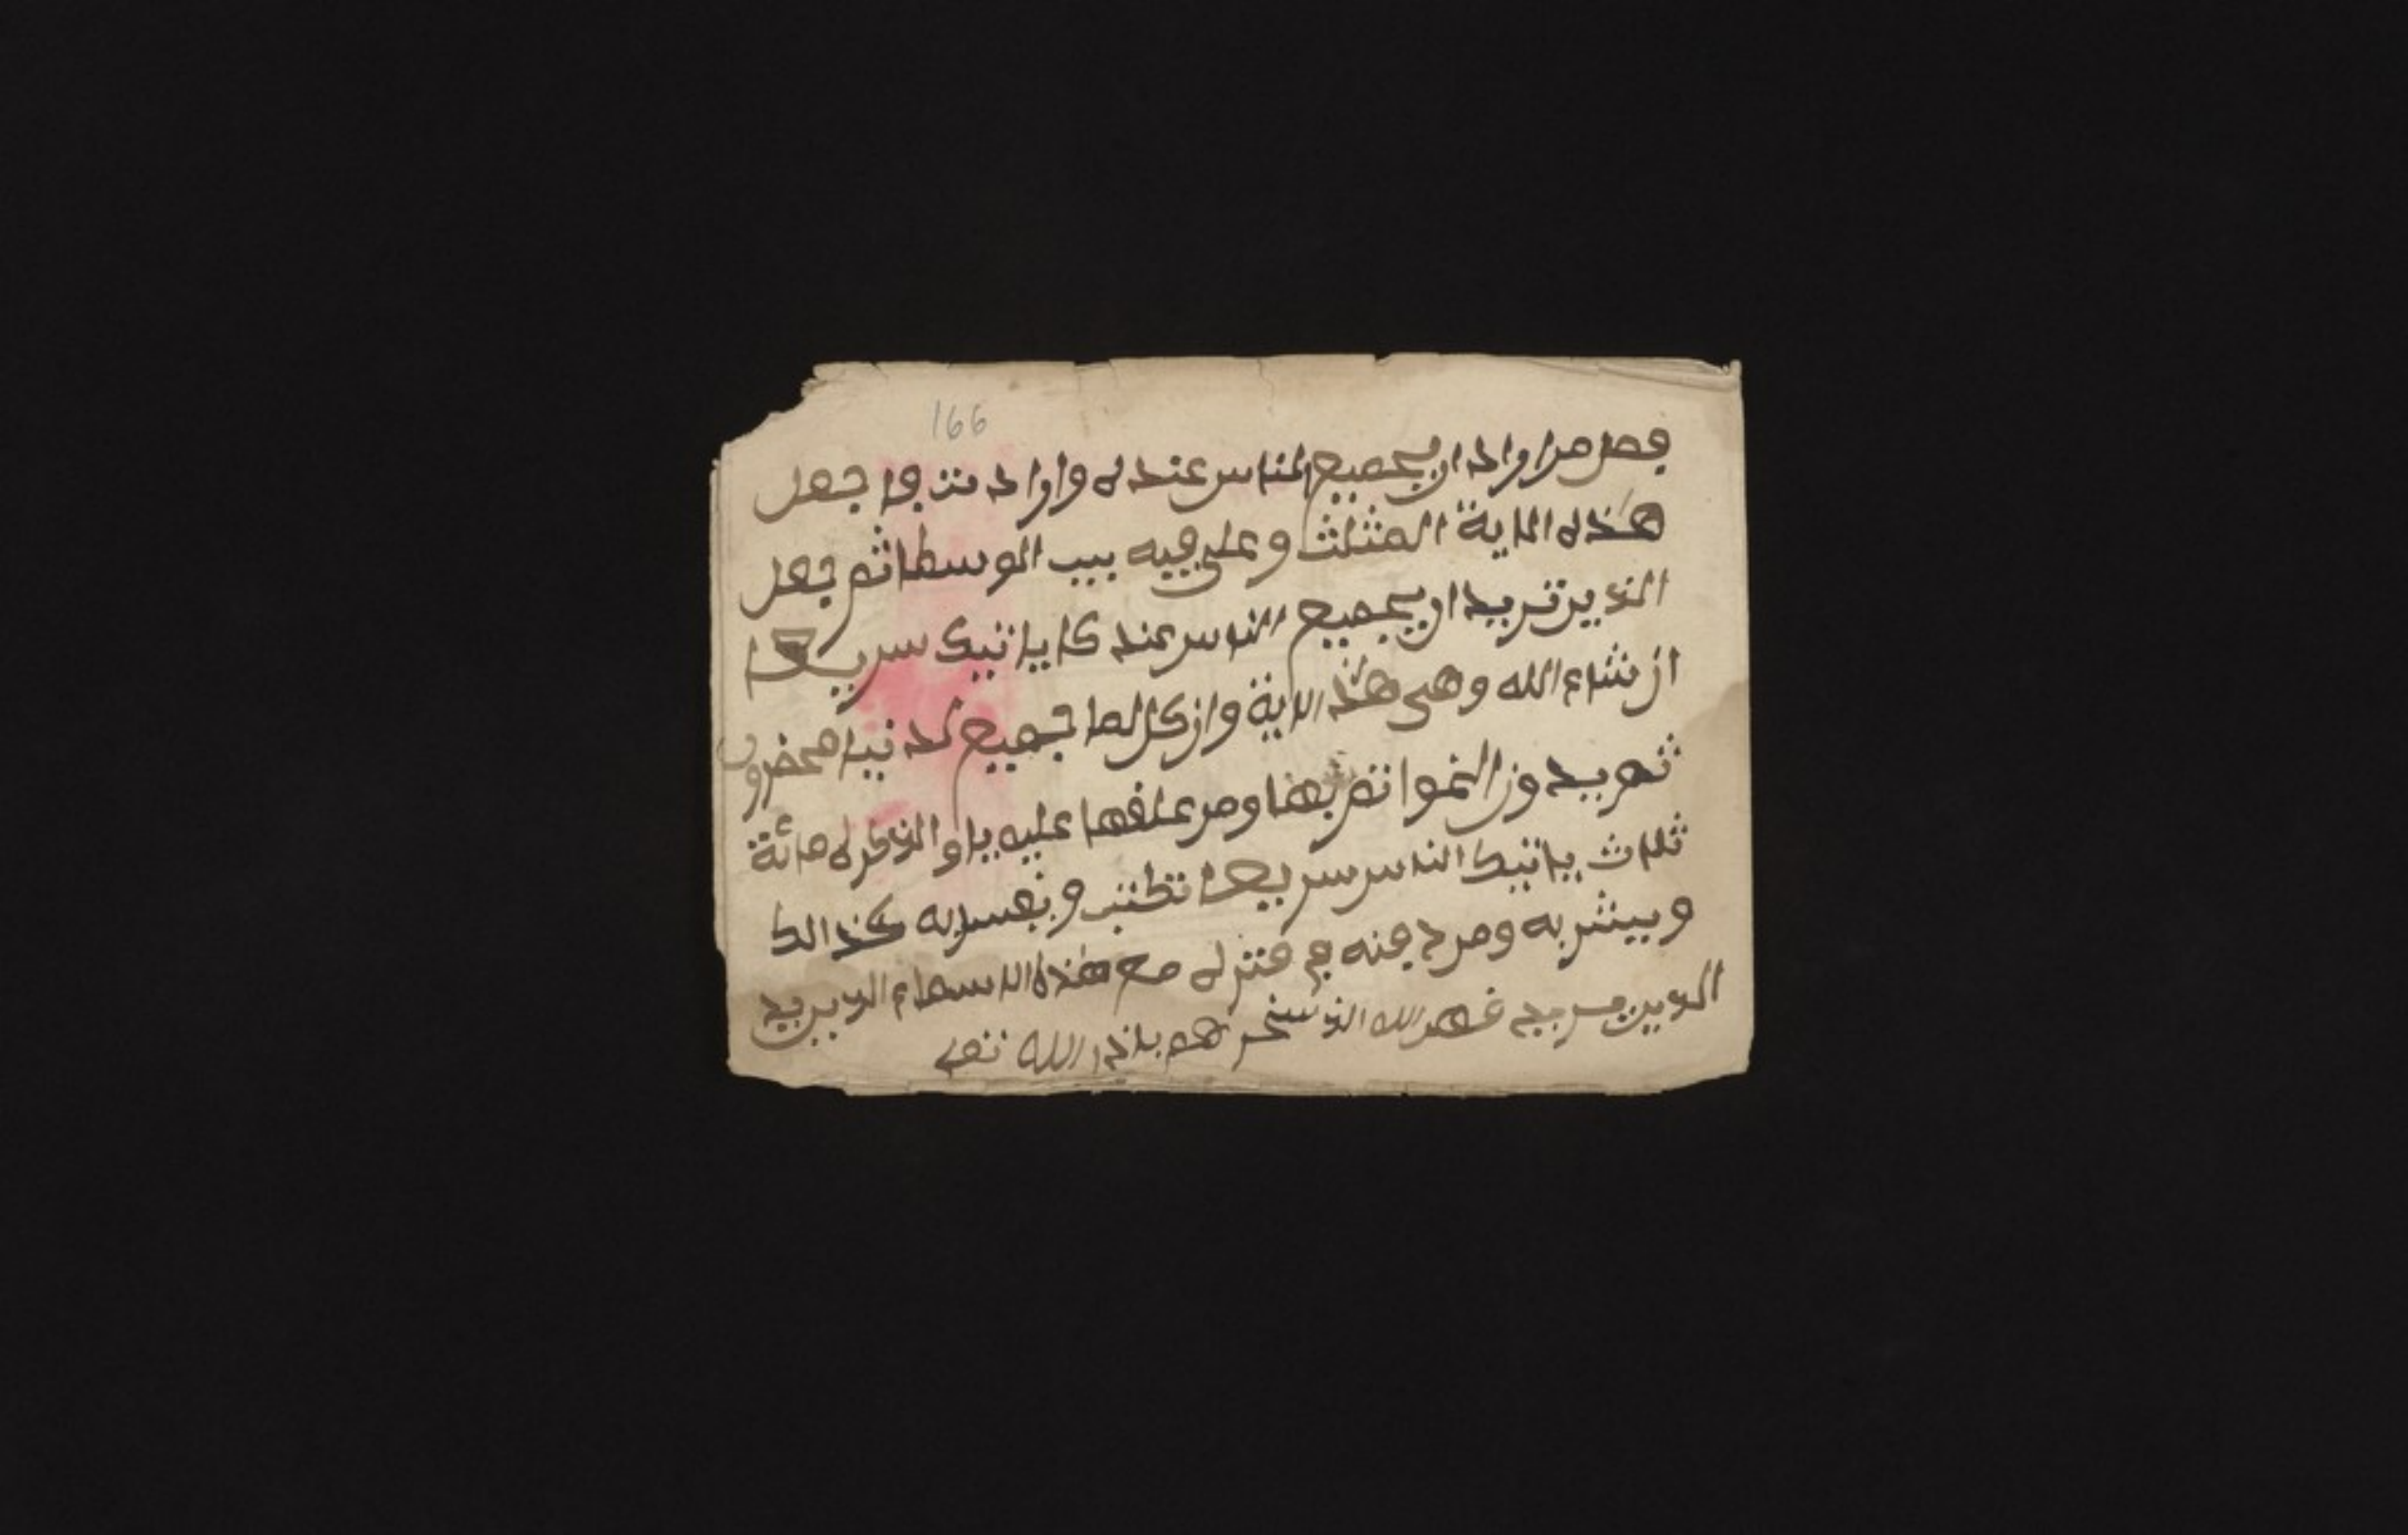 166
فصل من اراد ان يجميع الناس عنده واراد منتفا جعل
هذه الاية المثلث وعلى فيه بيب الوسطا ثم جعل
الذين تريد ان يجميع الناس عندكا ياتيك سريعا
ان شاء الله وهى هذ الاية وان كل لما جميع لدنيا محضرون
ثم يريد وز النحوا ثم بها ومر علفها عليه ياو الذكره مائة
ثلاث ياتيك الناس سريعا تكتب ويغسله كذالك
ويشربه ومر دفنه في منزله مع هذه الاسماء الذ يريد
الذين يريد فهم الله الذ سخر هم باذن الله تعلى